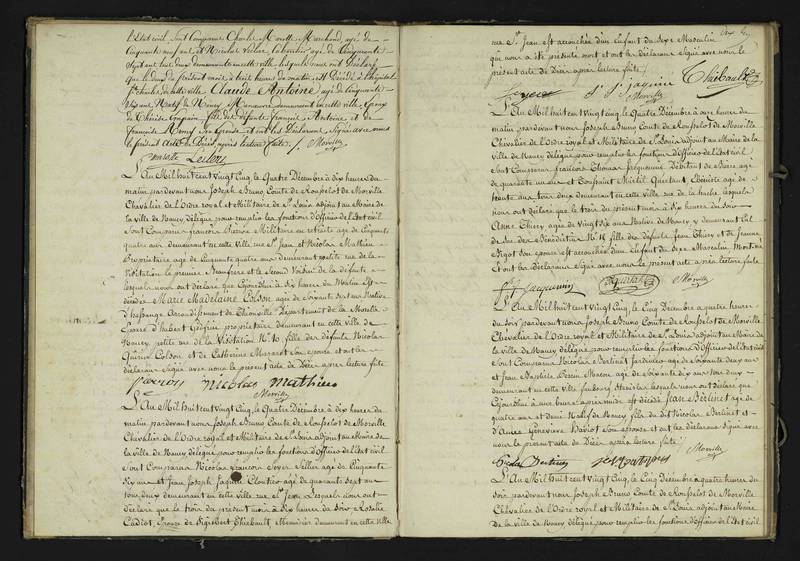 L'Etat civil, sont Comparus Charles Mourotte Marchand, agé de
Cinquante neuf ans et Nicolas Leclerc, agé de Cinquante
Sept ans tous deux demeurants en cette ville, lesquels nous ont Déclaré
que le deux du présent mois, à huit heures du matin, est Décédé à l'hôpital
de cette ville, Claude Antoine agé de Cinquante
ans Natif de Nancy Manoeuvre, demeurant en cette ville, Epoux
de Thérèse fils de défunts François Antoine et de
Françoise Remy son Epouse et ont les Déclarants Signé avec nous
le présent acte de Décès, après lecture faite. Morville
Mourotte Leclerc
L'An Mil huit cent vingt Cinq, le Quatre Décembre à dix heures du
matin pardevant nous Joseph Bruno Comte de Rousselot de Morville
Chevalier de l'Ordre royal et Militaire de St Louis adjoint au Maire de
la ville de Nancy délégué pour remplir les fonctions d'officier de l'Etat civil
Sont Comparus françois Militaire en retraite agé de Cinquante
quatre ans demeurant en cette ville rue St Jean et Nicolas Mathieu
Propriétaire agé de Cinquante quatre ans demeurant petite rue de la
Visitation le premier Beaufrere et le Second Voisin de la défunte
lesquels nous ont déclaré que Cejourd'hui à Six heures du Matin Est
décédée Marie Madelaine Colson agée de Soixante sept ans Native
d'hestange arrondissement de Thionville Département de la Moselle
Epouse d'hubert propriétaire demeurant en cette ville de
Nancy, petite rue de la Visitation No 10 fille des défunts Nicolas
Colson et de Catherine son épouse et ont les
déclarants Signé avec nous le présent acte de Décès après lecture faite
nicolas mathieu
Morville
L'An Mil huit cent vingt Cinq, le Quatre Décembre à dix heures du
matin pardevant nous Joseph Bruno Comte de Rousselot de Morville
Chevalier de l'Ordre royal et Militaire de St Louis adjoint au Maire de
la ville de Nancy délégué pour remplir les fonctions d'officier de l'Etat civil
Sont Comparus Nicolas françois Sellier agé de Cinquante
Six ans et Jean Joseph Cloutier agé de quarante sept ans
tous deux demeurant en cette ville rue St Jean Lesquels nous ont
déclaré que le trois du présent mois à dix heures du Soir Rosalie
Epouse de Sigisbert Thiebault, Menuisier demeurant en cette ville
rue St Jean est accouchée d'un Enfant du Sexe Masculin
qui nous a été présenté mort et ont les déclarants Signé avec nous le
présent acte de Décès après lecture faite
Thiébault
Morville
L'An Mil huit cent vingt Cinq, le Quatre Décembre à onze heures du
matin, pardevant nous Joseph Bruno Comte de Rousselot de Morville
Chevalier de l'Ordre royal et Militaire de St Louis adjoint au Maire de la
ville de Nancy délégué pour remplir les fonctions d'officier de l'Etat civil
Sont Comparus françois Thomas Jacquemin Débitant de Bierre agé
de quarante un ans et Toussaint Michel Ebéniste agé de
trente ans tous deux demeurant en cette ville rue de la hache lesquels
nous ont déclaré que le trois du présent mois à dix heures du Soir
Anne Thiery agée de Vingt dix ans Native de Nancy y demeurant
rue des Bénédictins No 11 fille des défunts Jean Thiery et de Jeanne
Bigot Son épouse est accouchée d'un Enfant du Sexe Masculin Mort né
Et ont les déclarants Signé avec nous le présent acte après lecture faite
Jacquemin Morville
L'An Mil huit cent vingt Cinq, le Cinq Décembre à quatre heures
du Soir pardevant nous Joseph Bruno Comte de Rousselot de Morville
Chevalier de l'Ordre royal et Militaire de St Louis adjoint au Maire de
la ville de Nancy délégué pour remplir les fonctions d'officier de l'Etat civil
Sont Comparus Nicolas Berlinet Jardinier agé de Soixante deux ans
et Jean Baptiste Maçon agé de Soixante dix ans tous deux
demeurant en cette ville faubourg Stanislas lesquels nous ont déclaré que
Cejourd'hui à une heure après midi est décédé Jean Berlinet agé de
quatre ans et demi Natif de Nancy fils du dit Nicolas Berlinet et
d'Anne Geneviève Hariot Son épouse et ont les déclarants Signé avec
nous le présent acte de Décès après lecture faite
Nicolas Berlinet Morville
L'An Mil huit cent vingt Cinq, le Cinq Décembre à quatre heures du
soir pardevant nous Joseph Bruno Comte de Rousselot de Morville
Chevalier de l'Ordre royal et Militaire de St Louis adjoint au Maire
de la ville de Nancy délégué pour remplir les fonctions d'officier de l'Etat civil